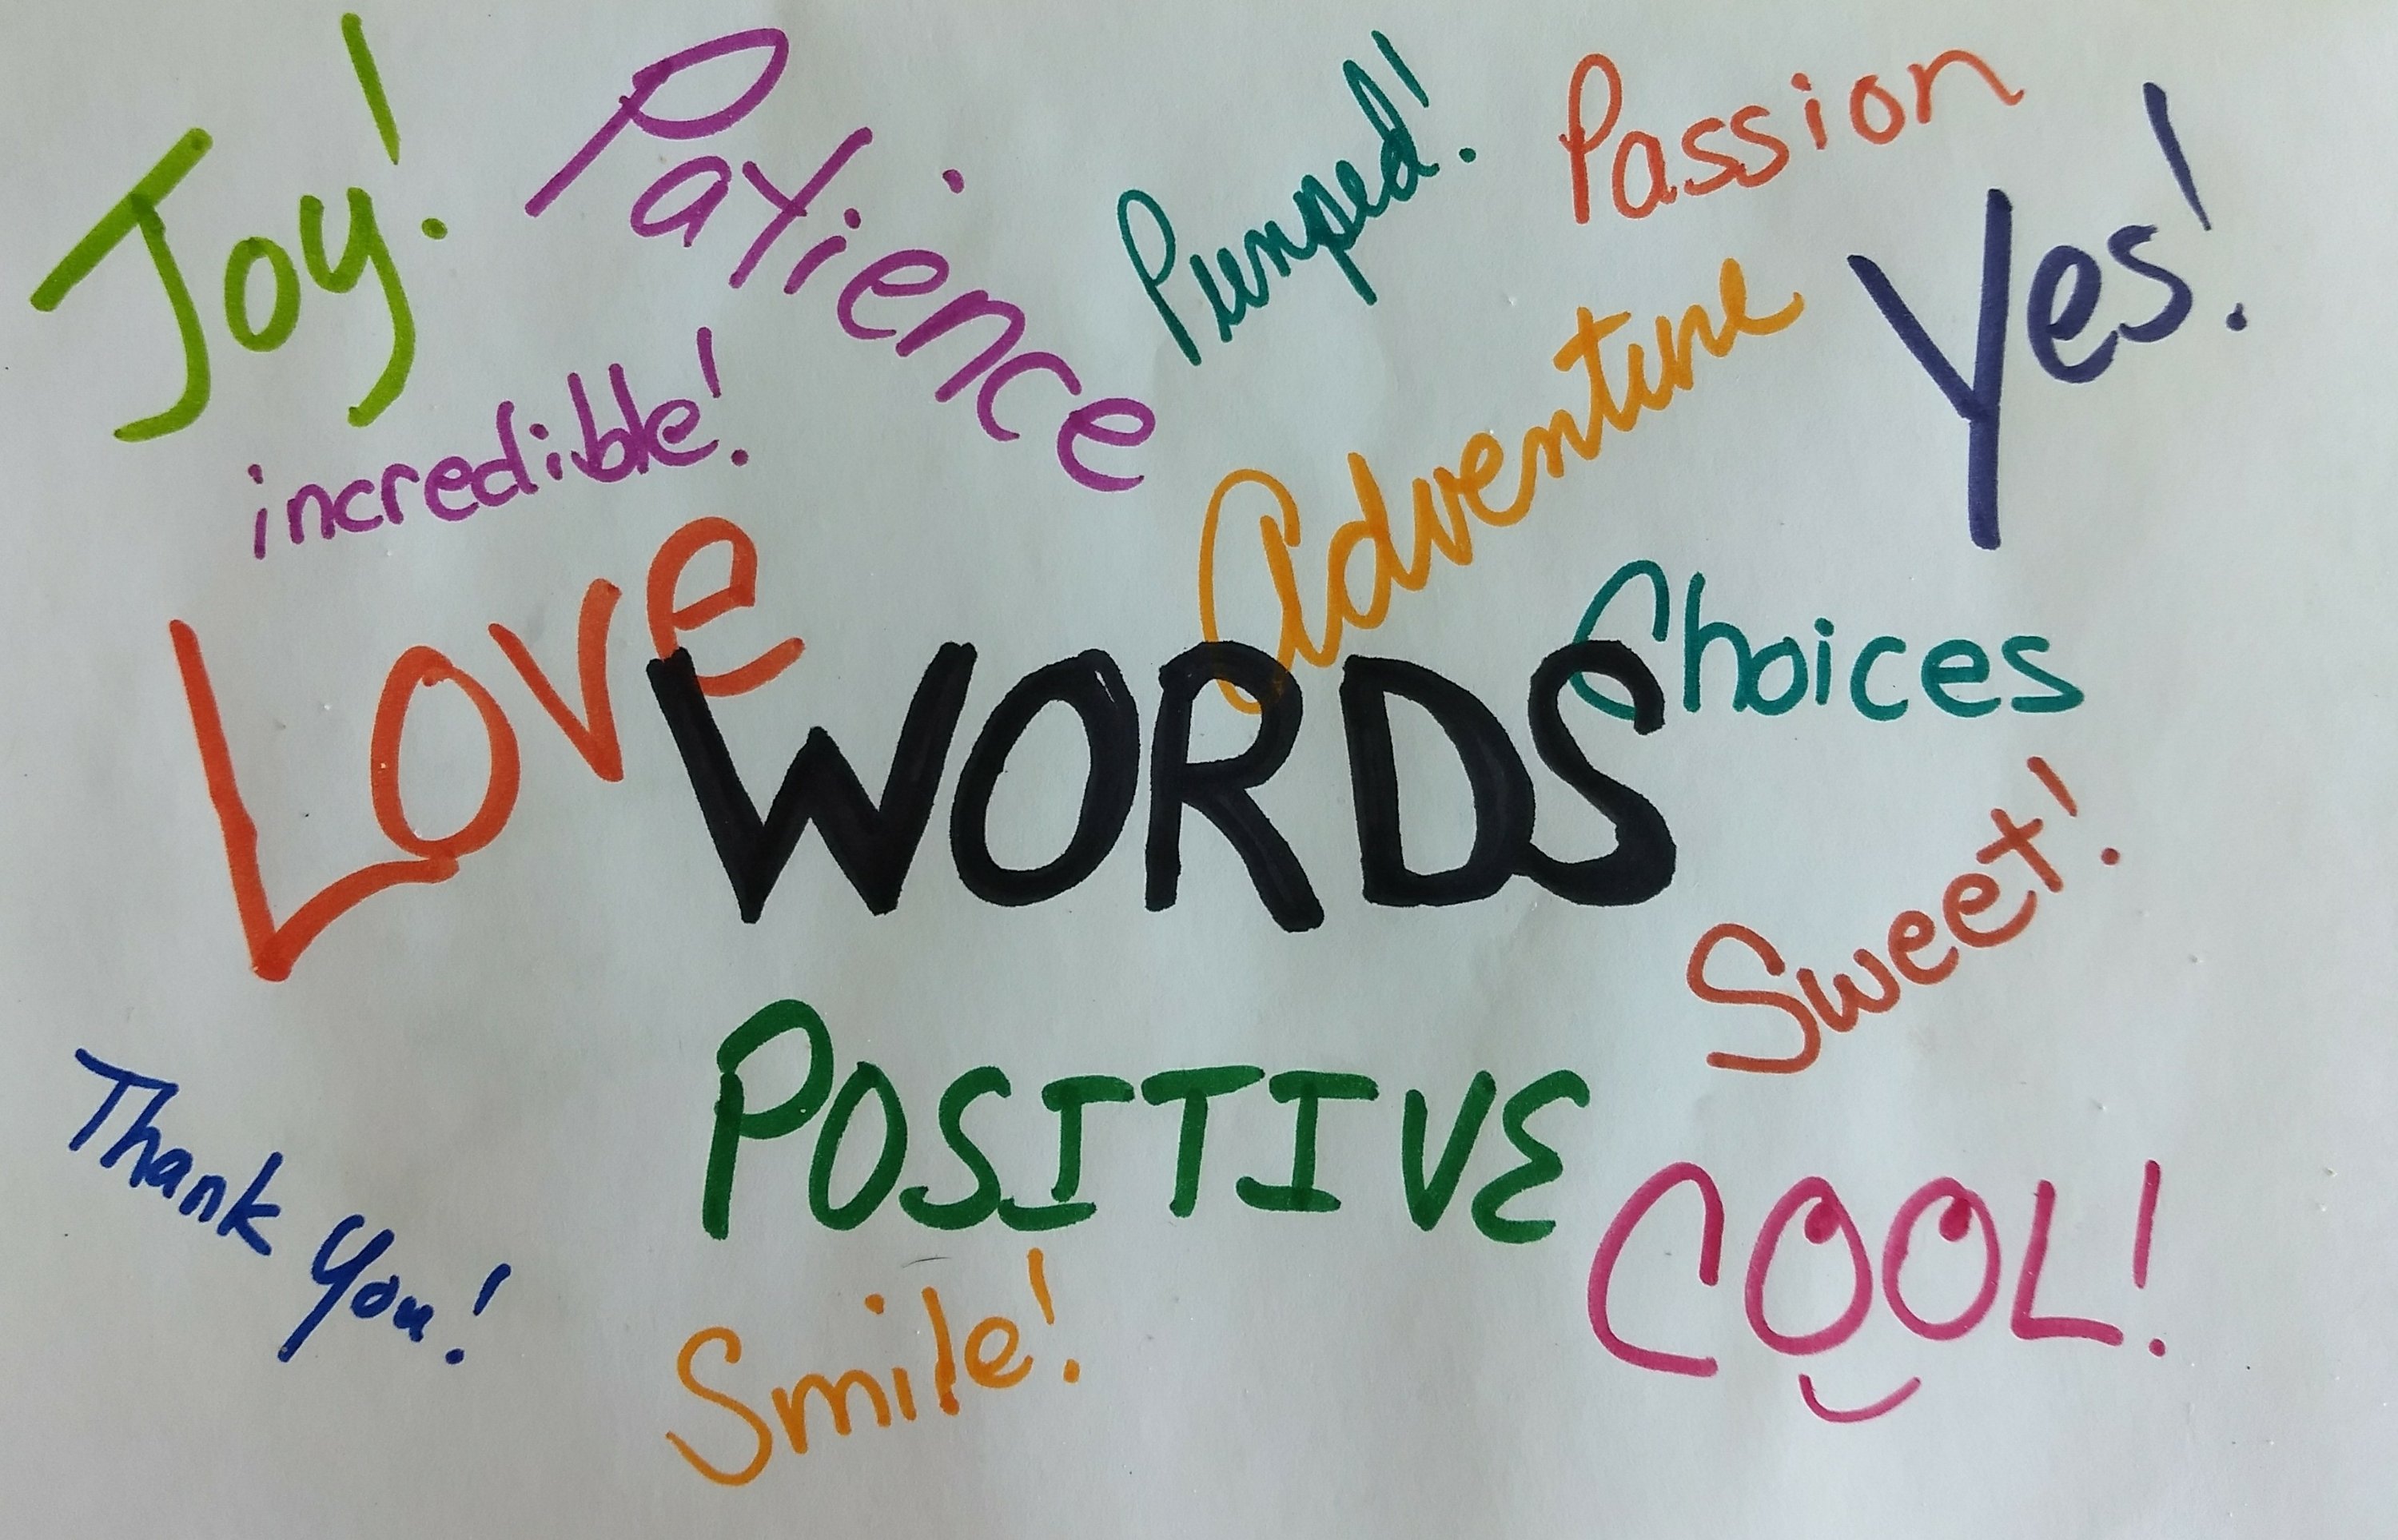 Joy!
Patience
Pumped!
Passion
Yes!
incredible!
Adventure
Love
Choices
WORDS
Sweet!
POSITIVE
Thank You!
COOL!
Smile!